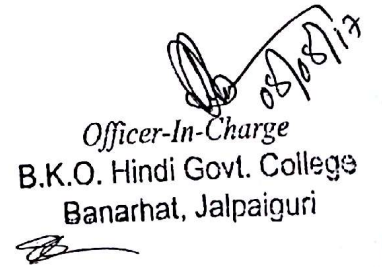 08/08/17
Officer-In-Charge
B.K.O. Hindi Govt. College
Banarhat, Jalpaiguri